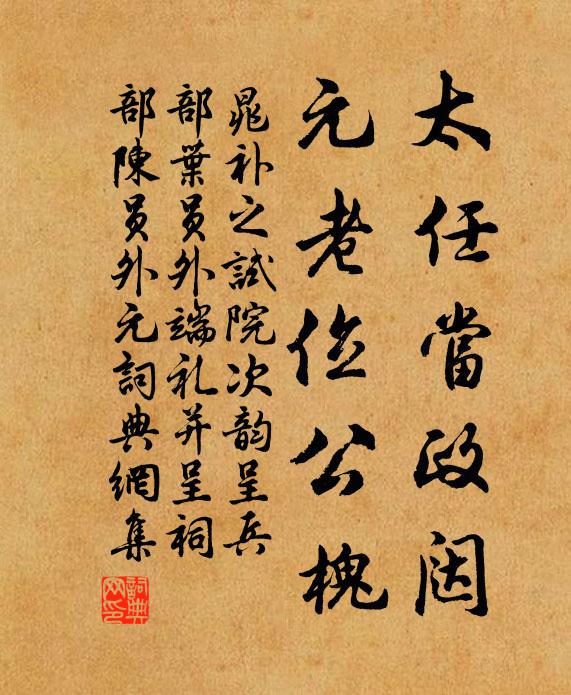 太任當政閎
元老位公槐
晁补之試院次韵呈兵
部葉員外端礼并呈祠
部陳員外元詞典網集
詞典網印